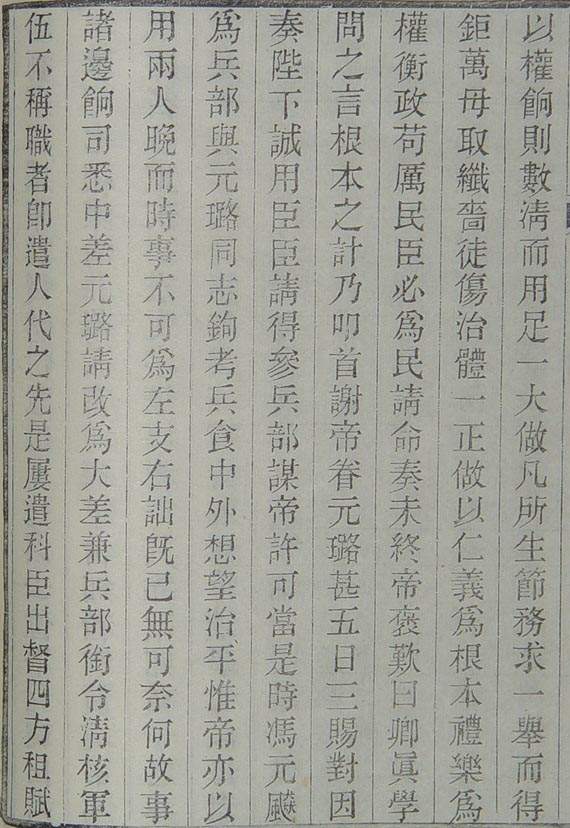 以權餉則數淸而用足一大做凡所生節務求一舉而得
鉅萬毋取纎嗇徒傷治體一正做以仁義爲根本禮樂爲
權衡政苟厲民臣必爲民請命奏未終帝褒歎曰卿眞學
問之言根本之計乃叩首謝帝眷元璐甚五日三賜對因
奏陛下誠用臣臣請得參兵部謀帝許可當是時馮元飇
爲兵部與元璐同志鉤考兵食中外想望治平惟帝亦以
用兩人晚而時事不可爲左支右詘旣已無可奈何故事
諸邊餉司悉中差元璐請改爲大差兼兵部銜令淸核軍
伍不稱職者卽遣人代之先是屢遣科臣出督四方租賦